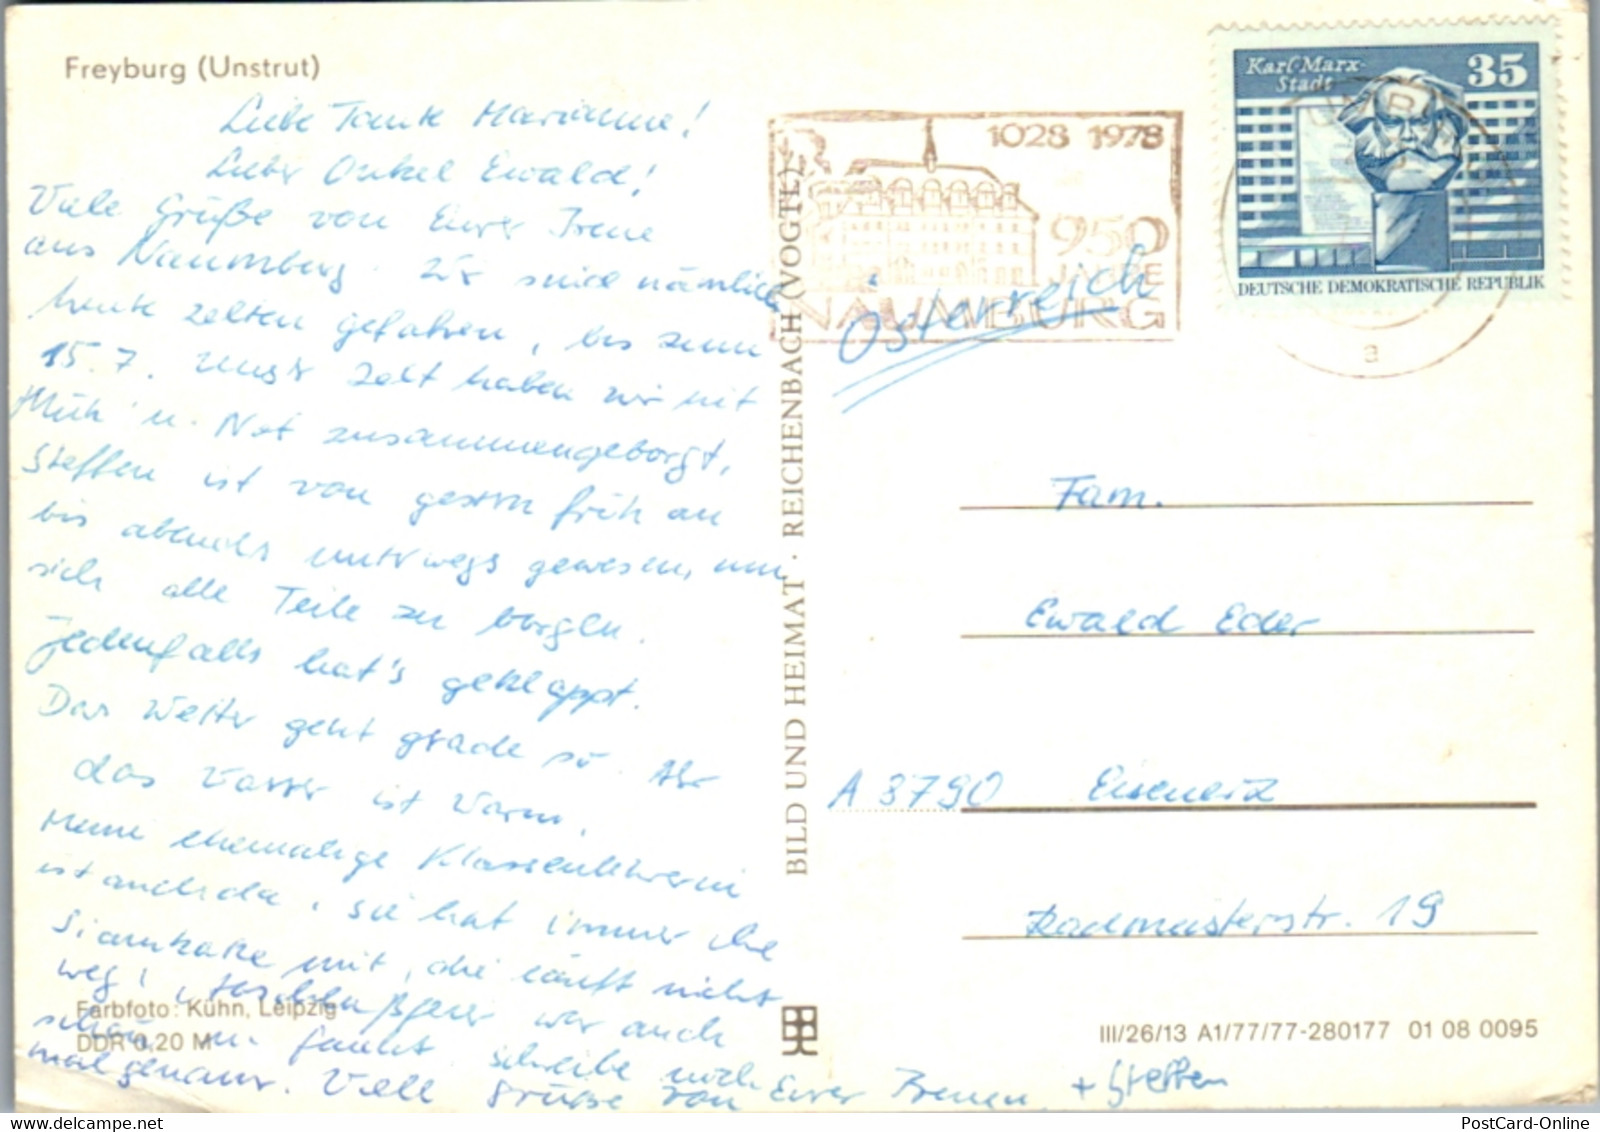 Freyburg (Unstrut)
Liebe Tante Marianne!
Lieber Onkel Ewald!
Viele Grüße von Eurer Irene
aus Naumburg. Wir sind nämlich
heute zelten gefahren, bis zum
15.7. unser Zelt haben wir mit
Müh' u. Not zusammengeborgt,
Steffen ist von gestern früh an
bis abends unterwegs gewesen, um
sich alle Teile zu borgen.
Jedenfalls hat's geklappt.
Das Wetter geht grade so. Aber
das Wasser ist warm.
Meine ehemalige Klassenlehrerin
ist auch da, sie hat immer ihre
Siamkatze mit, die läuft nicht
weg! war auch
schön u. schreibe noch
mal genauer. Viele Grüße von Eurer Irenen + Steffen
Farbfoto: Kühn, Leipzig
DDR 0,20 M
BILD UND HEIMAT · REICHENBACH (VOGTL)
1028 1978
950
JAHRE
NAUMBURG
Österreich
Karl-Marx-
Stadt
35
DEUTSCHE DEMOKRATISCHE REPUBLIK
a
Fam.
Ewald Eder
A 8790 Eisenerz
Radmeisterstr. 19
III/26/13 A1/77/77-280177 01 08 0095
PostCard-Online